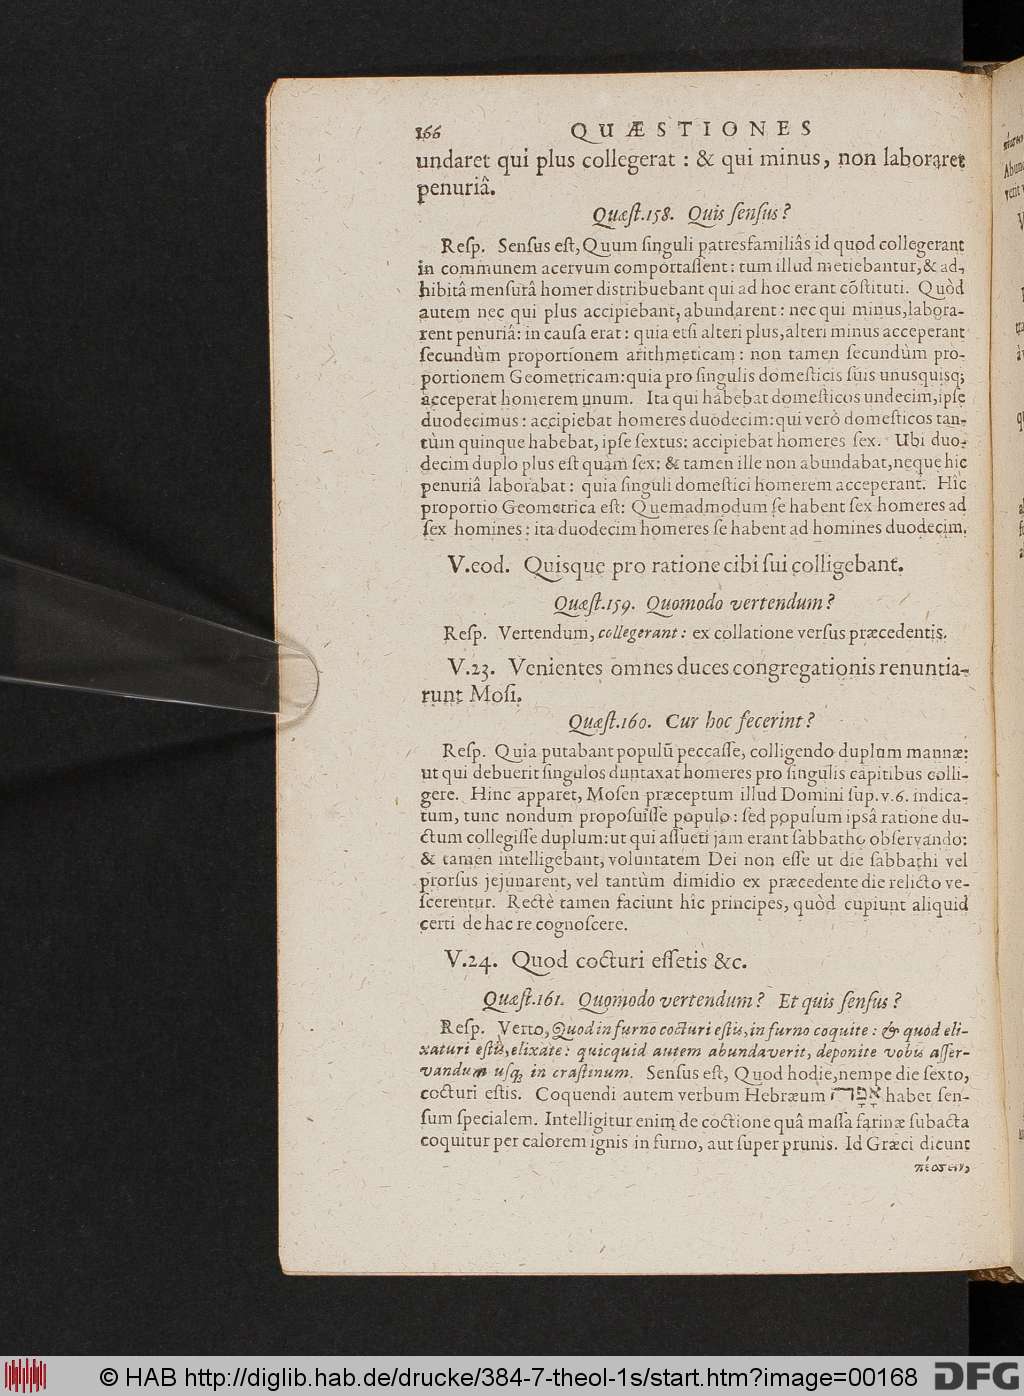 166 QUÆSTIONES
undaret qui plus collegerat : & qui minus, non laboraret
penuriâ.
Quæſt.158. Quis ſenſus?
Reſp. Senſus eſt, Quum ſinguli patresfamiliâs id quod collegerant
in communem acervum comportaſſent: tum illud metiebantur, & ad-
hibitâ menſurâ homer diſtribuebant qui ad hoc erant cõſtituti. Quòd
autem nec qui plus accipiebant, abundarent: nec qui minus, labora-
rent penuriâ: in cauſa erat: quia etſi alteri plus, alteri minus acceperant
ſecundùm proportionem arithmeticam: non tamen ſecundùm pro-
portionem Geometricam: quia pro ſingulis domeſticis ſuis unusquisq;
acceperat homerem unum. Ita qui habebat domeſticos undecim, ipſe
duodecimus: accipiebat homeres duodecim: qui verò domeſticos tan-
tùm quinque habebat, ipſe ſextus: accipiebat homeres ſex. Ubi duo-
decim duplo plus eſt quàm ſex: & tamen ille non abundabat, neque hic
penuriâ laborabat: quia ſinguli domeſtici homerem acceperant. Hîc
proportio Geometrica eſt: Quemadmodum ſe habent ſex homeres ad
ſex homines: ita duodecim homeres ſe habent ad homines duodecim.
V.eod. Quisque pro ratione cibi ſui colligebant.
Quæſt.159. Quomodo vertendum?
Reſp. Vertendum, collegerant: ex collatione verſus præcedentis.
V.23. Venientes omnes duces congregationis renuntia-
runt Moſi.
Quæſt.160. Cur hoc fecerint?
Reſp. Quia putabant populũ peccaſſe, colligendo duplum mannæ:
ut qui debuerit ſingulos duntaxat homeres pro ſingulis capitibus colli-
gere. Hinc apparet, Moſen præceptum illud Domini ſup.v.6. indica-
tum, tunc nondum propoſuiſſe populo: ſed populum ipſâ ratione du-
ctum collegiſſe duplum: ut qui aſſueti jam erant ſabbatho obſervando:
& tamen intelligebant, voluntatem Dei non eſſe ut die ſabbathi vel
prorſus jejunarent, vel tantùm dimidio ex præcedente die relicto ve-
ſcerentur. Rectè tamen faciunt hîc principes, quòd cupiunt aliquid
certi de hac re cognoſcere.
V.24. Quod cocturi eſſetis &c.
Quæſt.161. Quomodo vertendum? Et quis ſenſus?
Reſp. Verto, Quod in furno cocturi eſtis, in furno coquite: & quod eli-
xaturi eſtis, elixate: quicquid autem abundaverit, deponite vobis aſſer-
vandum uſq; in craſtinum. Senſus eſt, Quod hodie, nempe die ſexto,
cocturi eſtis. Coquendi autem verbum Hebræum אָפָה habet ſen-
ſum ſpecialem. Intelligitur enim de coctione quâ maſſa farinæ ſubacta
coquitur per calorem ignis in furno, aut ſuper prunis. Id Græci dicunt
© HAB http://diglib.hab.de/drucke/384-7-theol-1s/start.htm?image=00168
DFG